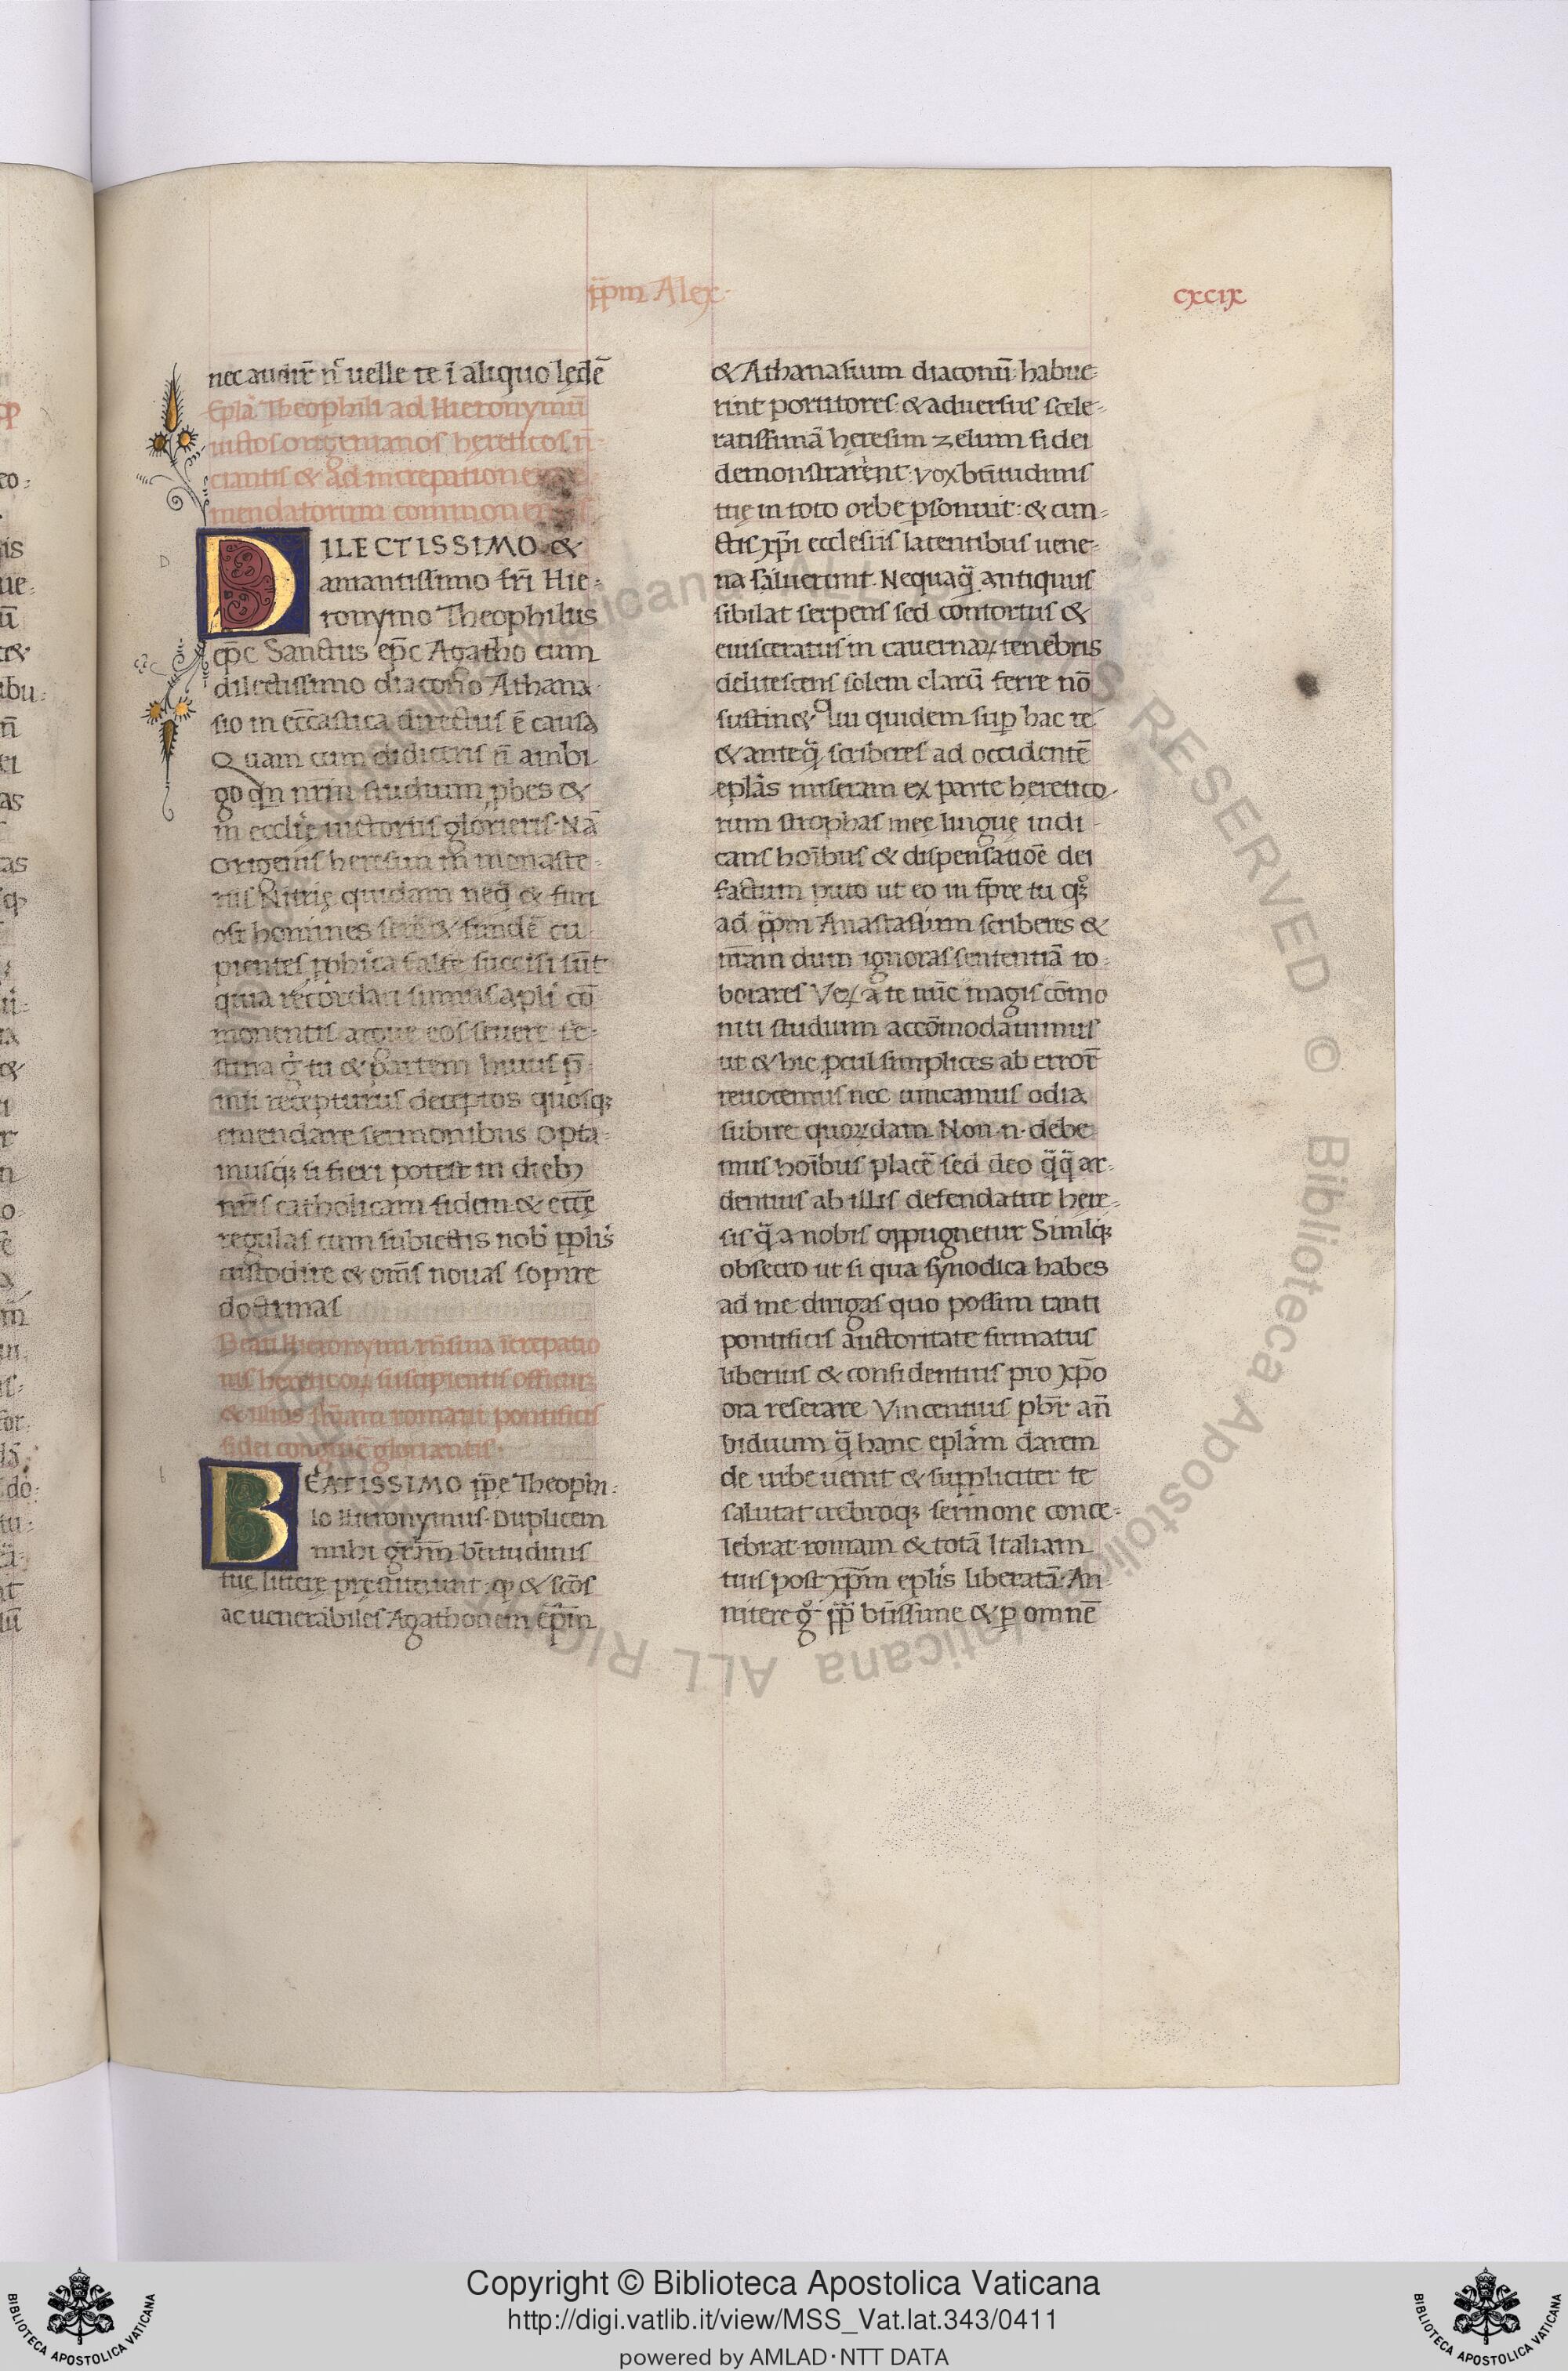 ꝑꝑm Alex·
cxcix
nec audir̄ n̄ uelle te ī aliquo lędē
Epl̄a Theophili ad Hieronymū
iustos origenianos hereticos n̄
ciantis & ad increpationē
mendatorum commonentis
DILECTISSIMO &
amantissimo fr̄i Hie-
ronymo Theophilus
ep̄c Sanctus ep̄c Agatho cum
dilectissimo diacono Athana
sio in ecc̄astica directus ē causa
Quam cum didiceris n̄ ambi
go qn nr̄m studium ꝓbes &
in eccl̄ię uictoriis glorieris· Nā
Origenis heresim in monaste-
riis Nitrię quidam neq̄ & furi
osi homines serē & fundē cu
pientes ꝓphica falce succisi sūt
quia recordati sumus apl̄i cō
monentis argue eos seuere fe-
stina g̊ tu & partem huius p̄
mii recepturus deceptos quosq;
emendare sermonibus Opta-
musq; si fieri potest in dieb;
nr̄is catholicam fidem & ecc̄ę
regulas cum subiectis nob̄ ppl̄is
custodire & om̄s nouas sopire
doctrinas
Beati Hieronymi rn̄siua īcrepatio
nis hereticoꝝ suscipientis officiū
& illius romani pontificis
fidei congruē gloriantis·
BEATISSIMO pp̄e Theophi-
lo Hieronymus· Duplicem
mihi gr̄am bt̄itudinis
tuę litterę prestiterunt· ꝙ & sc̄os
ac uenerabiles Agathonem ep̄m
& Athanasium diaconū habue-
rint portitores· & aduersus scele-
ratissimā heresim zelum fidei
demonstrarent· vox bt̄itudinis
tuę in toto orbe ꝑsonuit· & cun-
ctis xp̄i ecclesiis latentibus uene-
na siluerunt· Nequaq̄ antiquus
sibilat serpens sed contortus &
euisceratus in cauernaꝝ tenebris
delitescens solem clarū ferre nō
sustin& Qui quidem suꝑ hac re
& anteq̄ scriberes ad occidentē
epl̄as miseram ex parte heretico-
rum strophas meę linguę indi-
cans hoībus & dispensatiōe dei
factum puto ut eo in tp̄re tu qq;
ad pp̄m Anastasium scriberes &
nr̄am dum ignoras sententiā ro-
borares Veꝝ a te nūc magis cōmo
niti studium accōmodauimus
ut & hic ꝓcul simplices ab error̄
reuocemus nec timeamus odia
subire quoꝝdam Non ·n· debe
mus hoībus placē sed deo q̄q̄ ar-
dentius ab illis defendatur here-
sis q̄ a nobis oppugnetur Simulq;
obsecro ut si qua synodica habes
ad me dirigas quo possim tanti
pontificis auctoritate firmatus
liberius & confidentius pro xp̄o
ora reserare Vincentius pbr̄ an̄
biduum q̄ hanc epl̄am darem
de urbe uenit & suppliciter te
salutat crebroq; sermone conce-
lebrat romam & totā Italiam
tuis post xp̄m epl̄is liberatā· An
nitere g̊ pp̄ bt̄issime & ꝑ omnē
Biblioteca Apostolica Vaticana ALL RIGHTS RESERVED ©
Copyright © Biblioteca Apostolica Vaticana
http://digi.vatlib.it/view/MSS_Vat.lat.343/0411
powered by AMLAD·NTT DATA
BIBLIOTECA APOSTOLICA VATICANA
BIBLIOTECA APOSTOLICA VATICANA